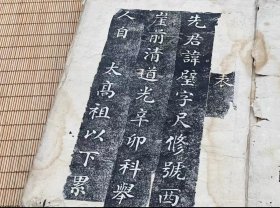 表
先君諱璧字尺修號西
崖前清道光辛卯科舉
人自　太高祖以下累